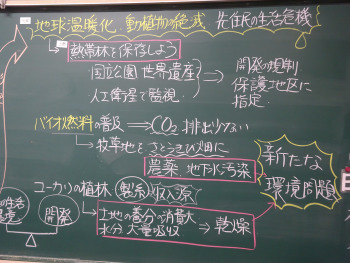 地球温暖化 動植物の絶滅 先住民の生活危機
熱帯林を保存しよう
国立公園 世界遺産
人工衛星で監視
開発の規制
保護地区に
指定
バイオ燃料の普及 → CO2 排出少ない
牧草地をさとうきび畑に
農薬 地下水汚染
新たな
環境問題
ユーカリの植林 製糸 収入源
土地の養分の消費大
水分 大量吸収 ⇒ 乾燥
の生活
環境
開発